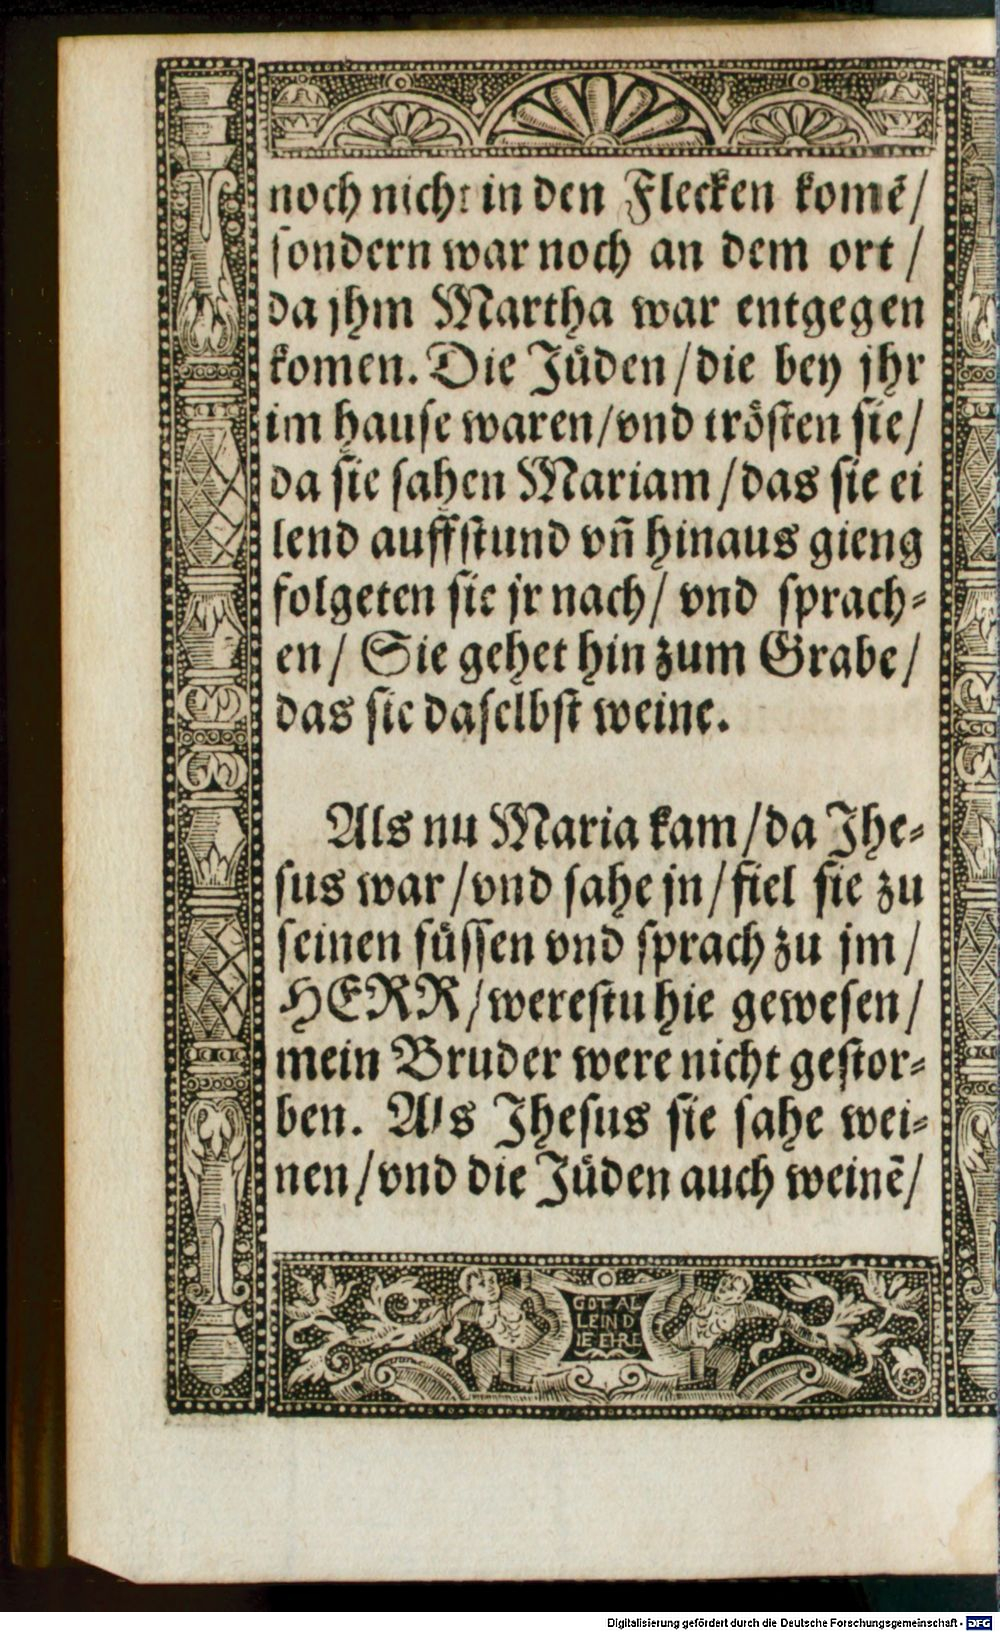 noch nicht in den Flecken komẽ/
ſondern war noch an dem ort/
da jhm Martha war entgegen
komen. Die Juͤden/die bey jhr
im hauſe waren/vnd troͤſten ſie/
da ſie ſahen Mariam/das ſie ei
lend auffſtund vñ hinaus gieng
folgeten ſie jr nach/ vnd ſprach⸗
en/ Sie gehet hin zum Grabe/
das ſie daſelbſt weine.
Als nu Maria kam/da Jhe⸗
ſus war/vnd ſahe jn/fiel ſie zu
ſeinen fuͤſſen vnd ſprach zu jm/
HERR/wereſtu hie geweſen/
mein Bruder were nicht geſtor⸗
ben. Als Jheſus ſie ſahe wei⸗
nen/vnd die Juͤden auch weinẽ/
GOT AL
LEIN D
IE EHRE
Digitalisierung gefördert durch die Deutsche Forschungsgemeinschaft - DFG